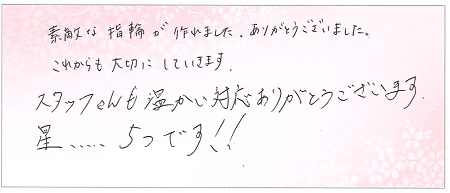 素敵な指輪が作れました。ありがとうございました。
これからも大切にしていきます。
スタッフさんも温かい対応ありがとうございます。
星……5つです!!